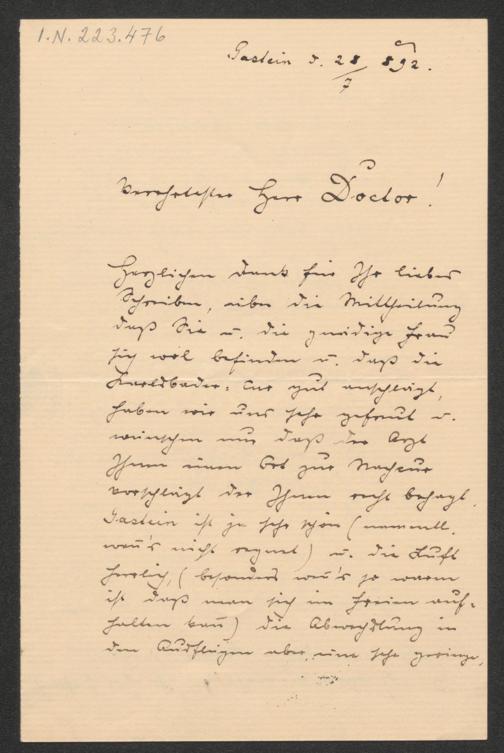 I.N. 223.476
Gastein d. 28/7 892.
Verehrtester Herr Doctor!
Herzlichen Dank für Ihr liebes
Schreiben, über die Mittheilung
daß Sie u. die gnädige Frau
sich wol befinden u. daß die
Karlsbader-Cur gut anschlägt,
haben wir uns sehr gefreut u.
wünschen nur daß der Arzt
Ihnen einen Ort zur Nachcur
vorschlägt der Ihnen recht behagt.
Gastein ist ja sehr schön (namentl.
wen̄'s nicht regnet) u. die Luft
herrlich, (besonders wen̄'s so warm
ist daß man sich im Freien auf-
halten kan̄) die Abwechslung in
den Ausflügen aber eine sehr geringe,